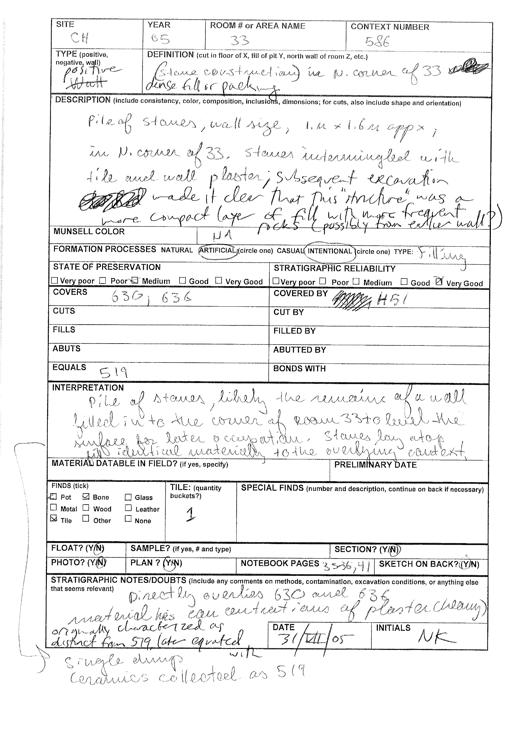 SITE YEAR ROOM # or AREA NAME CONTEXT NUMBER
CH 05 33 586
TYPE (positive, negative, wall) DEFINITION (cut in floor of X, fill of pit Y, north wall of room Z, etc.)
positive (stone construction) in N. corner of 33
Wall dense fill or packing
DESCRIPTION (include consistency, color, composition, inclusions, dimensions; for cuts, also include shape and orientation)
Pile of stones, wall size, 1.M x 1.6M appx,
in N. corner of 33. Stones intermingled with
tile and wall plaster; subsequent excavation
made it clear that this "structure" was a
more compact layer of fill with more frequent
rocks (possibly from earlier wall?)
MUNSELL COLOR NA
FORMATION PROCESSES NATURAL ARTIFICIAL (circle one) CASUAL INTENTIONAL (circle one) TYPE: filling
STATE OF PRESERVATION STRATIGRAPHIC RELIABILITY
Very poor Poor Medium Good Very Good Very poor Poor Medium Good Very Good
COVERS 630, 636 COVERED BY H51
CUTS CUT BY
FILLS FILLED BY
ABUTS ABUTTED BY
EQUALS 519 BONDS WITH
INTERPRETATION
Pile of stones, likely the remains of a wall
filled in to the corner of room 33 to level the
surface for later occupation. Stones lay atop
fill identical materially to the overlying context.
MATERIAL DATABLE IN FIELD? (if yes, specify) PRELIMINARY DATE
FINDS (tick) TILE: (quantity buckets?) SPECIAL FINDS (number and description, continue on back if necessary)
Pot Bone Glass
Metal Wood Leather 1
Tile Other None
FLOAT? (Y/N) SAMPLE? (if yes, # and type) SECTION? (Y/N)
PHOTO? (Y/N) PLAN ? (Y/N) NOTEBOOK PAGES 35-36, 41 SKETCH ON BACK? (Y/N)
STRATIGRAPHIC NOTES/DOUBTS (Include any comments on methods, contamination, excavation conditions, or anything else
that seems relevant) Directly overlies 630 and 636
material has concentrations of plaster (heavy)
originally characterized as DATE INITIALS
distinct from 519, later equated 31/VII/05 NK
with
Single dump
Ceramics collected as 519